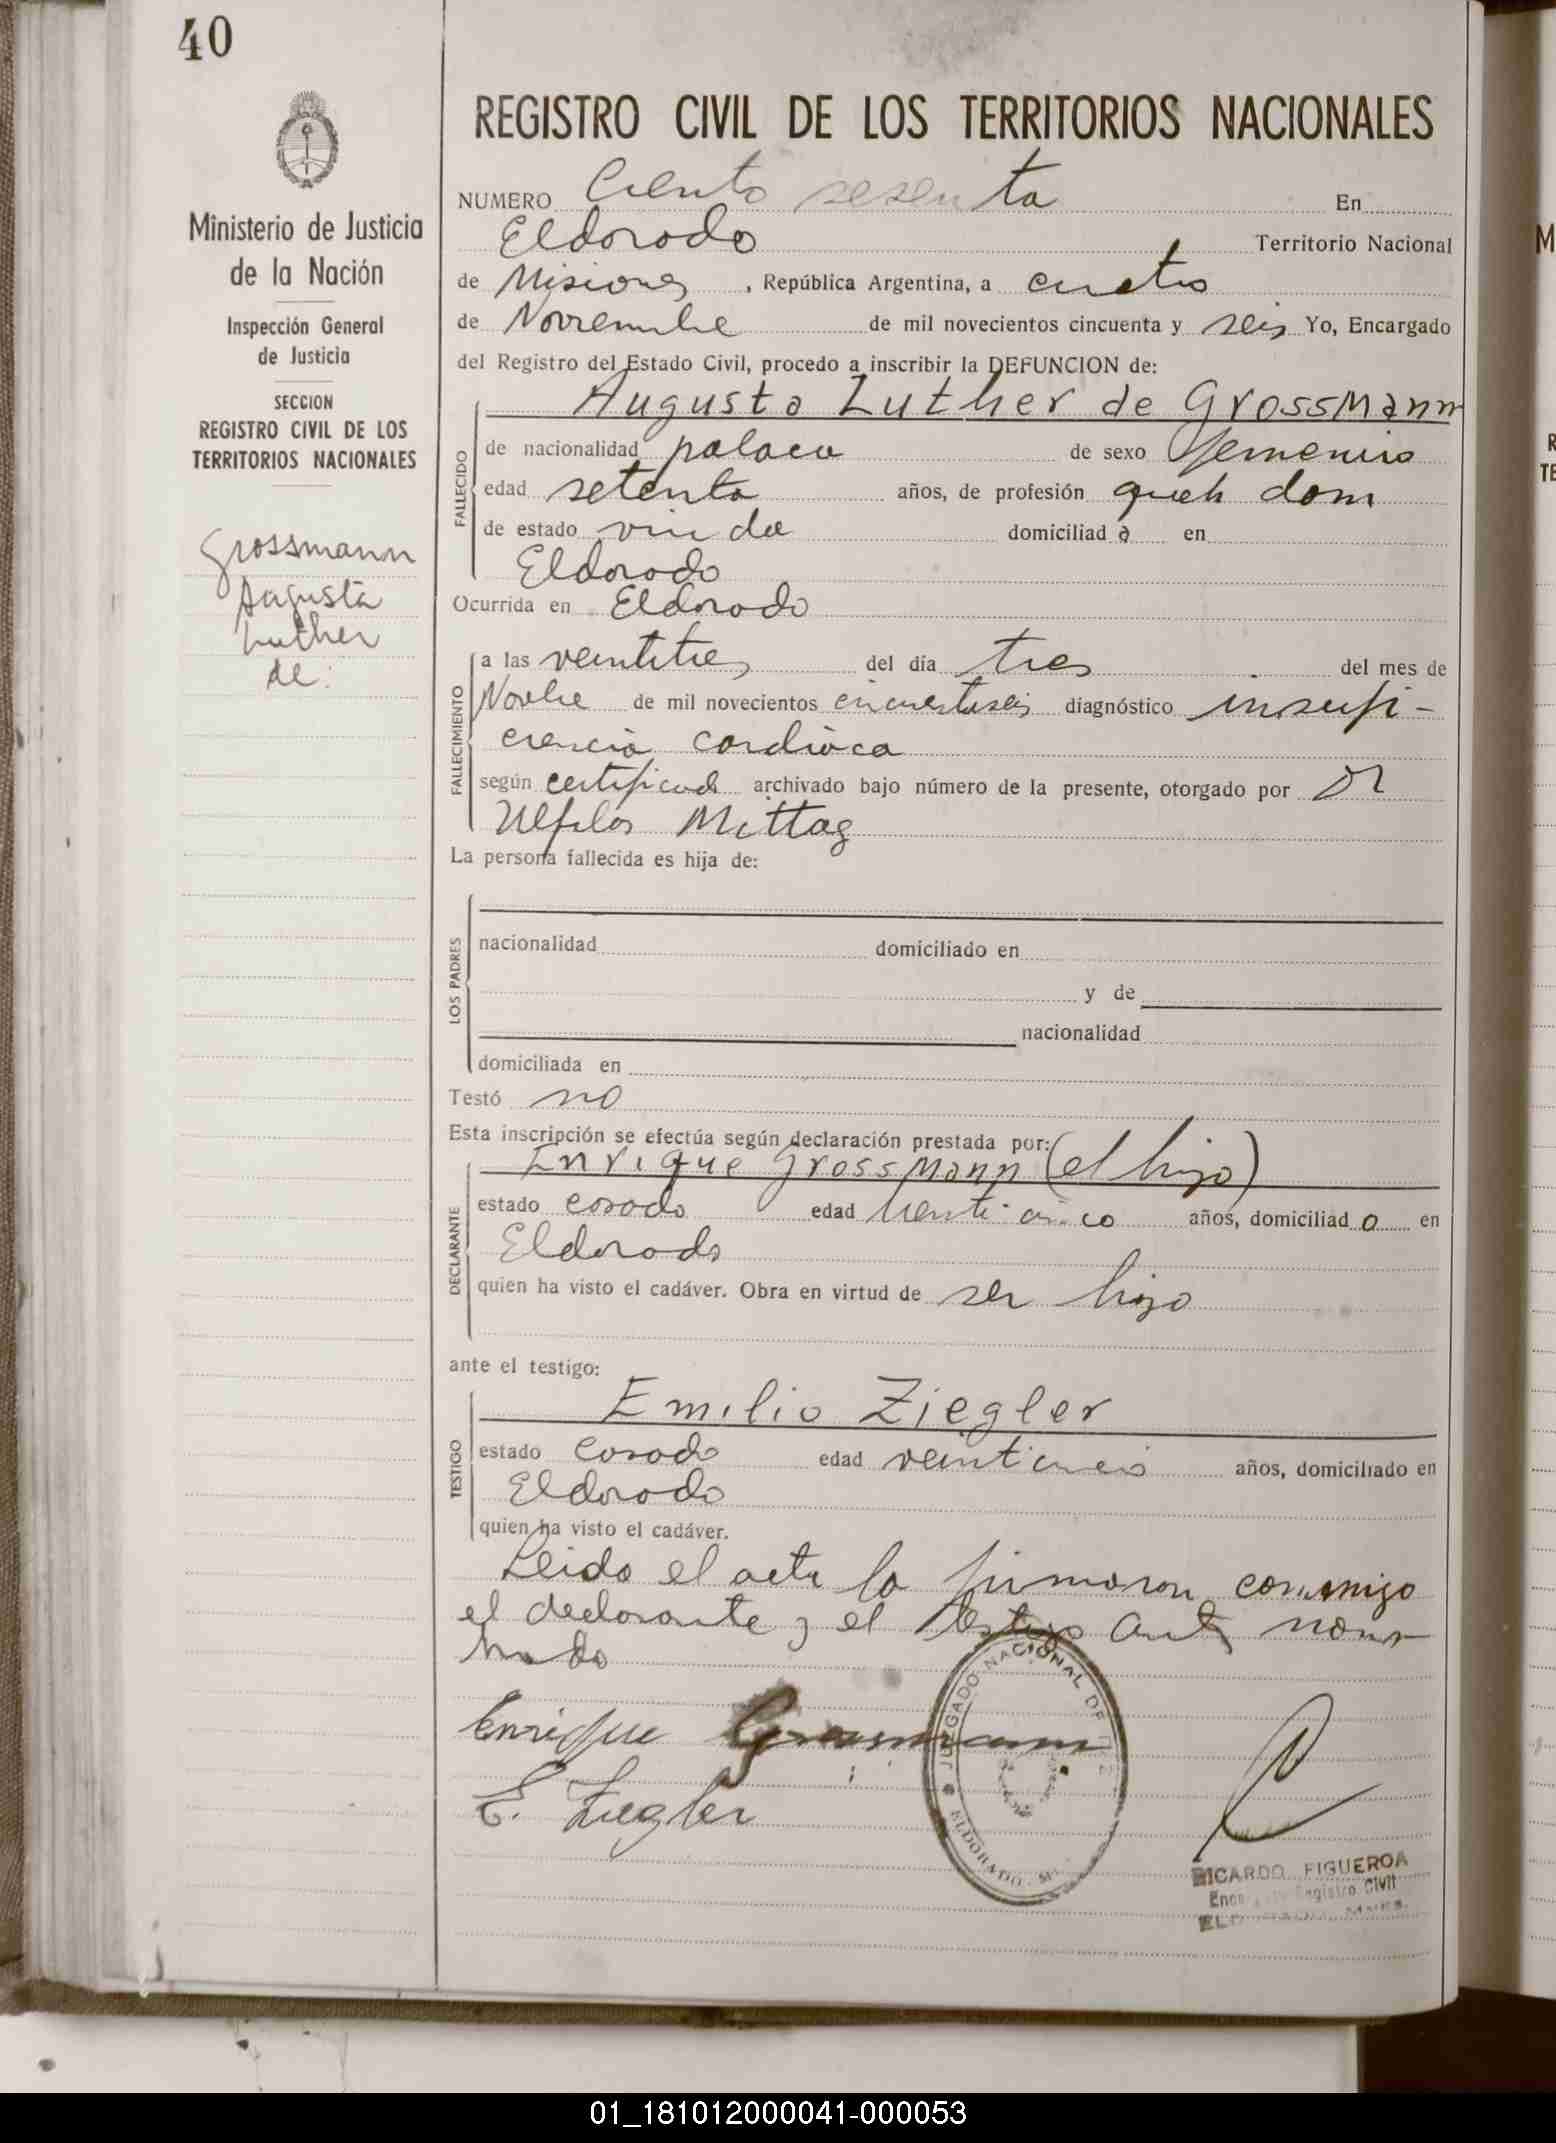 40
Ministerio de Justicia
de la Nación
Inspección General
de Justicia
SECCION
REGISTRO CIVIL DE LOS
TERRITORIOS NACIONALES
Grossmann
Augusta
Luther
de:
REGISTRO CIVIL DE LOS TERRITORIOS NACIONALES
NUMERO Ciento sesenta En
Eldorado Territorio Nacional
de Misiones , República Argentina, a cuatro
de Noviembre de mil novecientos cincuenta y seis Yo, Encargado
del Registro del Estado Civil, procedo a inscribir la DEFUNCION de:
Augusta Luther de Grossmann
FALLECIDO
de nacionalidad polaca de sexo femenino
edad setenta años, de profesión queh dom
de estado viuda domiciliad a en
Eldorado
Ocurrida en Eldorado
FALLECIMIENTO
a las veintitres del día tres del mes de
Novbe de mil novecientos cincuentiseis diagnóstico insufi-
ciencia cardiaca
según certificado archivado bajo número de la presente, otorgado por Dr
Ulfilas Mittag
La persona fallecida es hija de:
LOS PADRES
nacionalidad domiciliado en
y de
nacionalidad
domiciliada en
Testó no
Esta inscripción se efectúa según declaración prestada por:
Enrique Grossmann (el hijo)
DECLARANTE
estado casado edad años, domiciliad o en
Eldorado
quien ha visto el cadáver. Obra en virtud de ser hijo
ante el testigo:
Emilio Ziegler
TESTIGO
estado casado edad veinticinco años, domiciliado en
Eldorado
quien ha visto el cadáver.
Leido el acta la firmaron conmigo
el declarante y el testigo antes nom
brado
Enrique Grossmann
E. Ziegler
JUZGADO NACIONAL DE PAZ
ELDORADO - Ms.
RICARDO FIGUEROA
Registro Civil
01_181012000041-000053